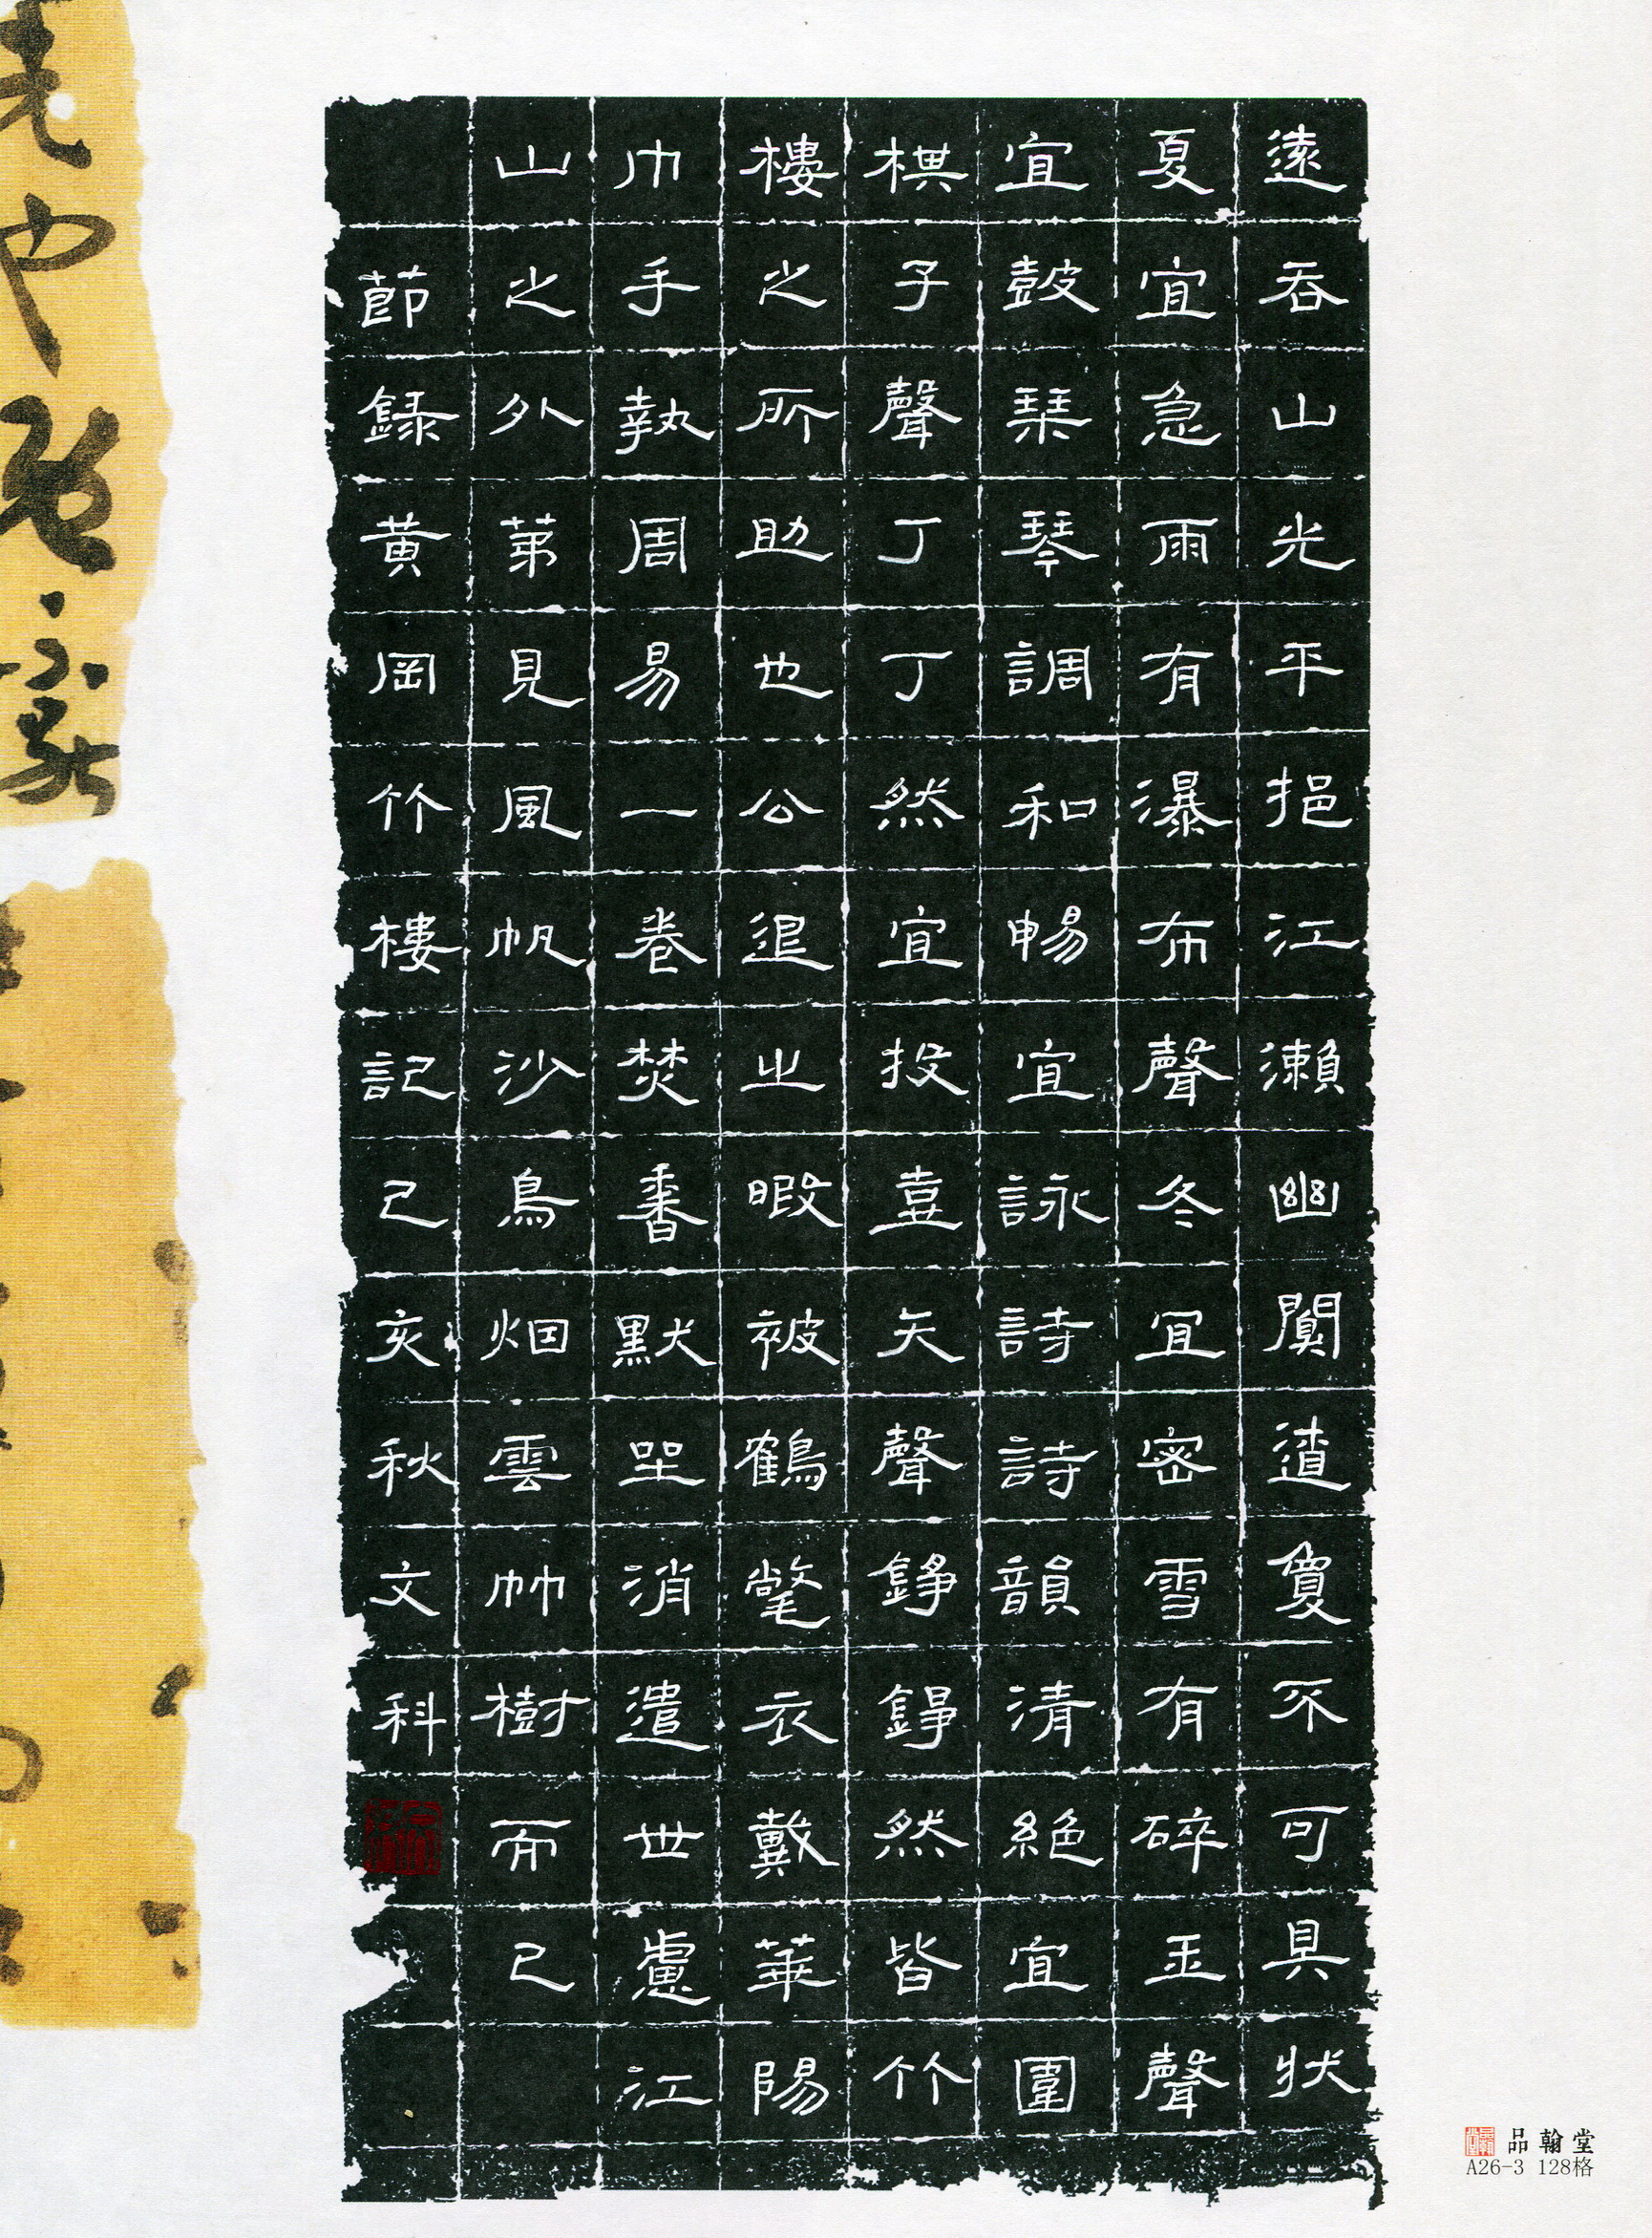 遠吞山光平挹江瀨幽闃遼夐不可具狀
夏宜急雨有瀑布聲冬宜密雪有碎玉聲
宜鼓琹琴調和暢宜詠詩詩韻清絕宜圍
棋子聲丁丁然宜投壺矢聲錚錚然皆竹
樓之所助也公退之暇被鶴氅衣戴華陽
巾手執周易一卷焚香默坐消遣世慮江
山之外第見風帆沙鳥烟雲竹樹而已
節錄黄岡竹樓記己亥秋文科
品翰堂
A26-3 128格